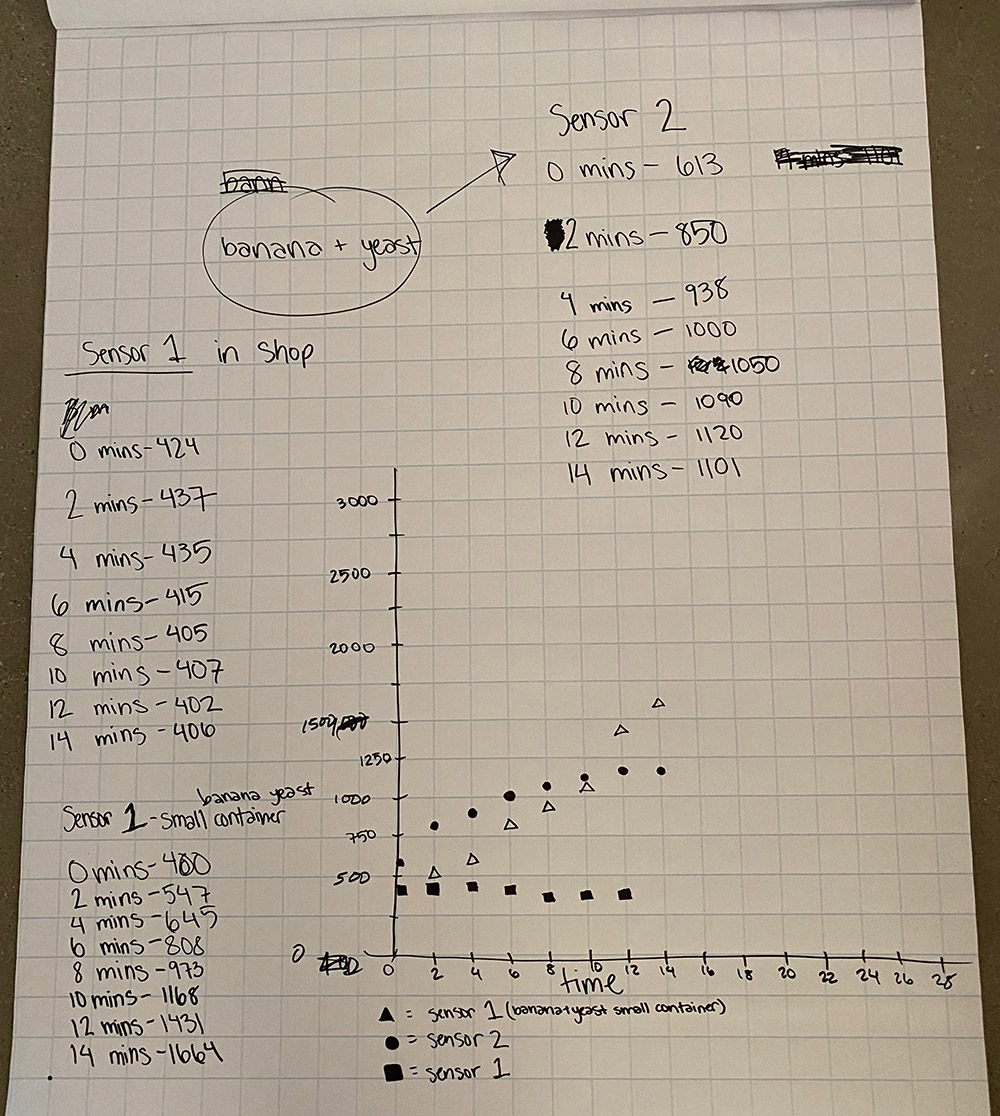 Sensor 2
0 mins - 613
2 mins - 850
4 mins - 938
6 mins - 1000
8 mins - 1050
10 mins - 1090
12 mins - 1120
14 mins - 1101
bann
banana + yeast
Sensor 1 in shop
0 mins - 424
2 mins - 437
4 mins - 435
6 mins - 415
8 mins - 405
10 mins - 407
12 mins - 402
14 mins - 406
banana yeast
Sensor 1 - small container
0 mins - 400
2 mins - 547
4 mins - 645
6 mins - 808
8 mins - 973
10 mins - 1168
12 mins - 1431
14 mins - 1664
3000
2500
2000
1500
1250
1000
750
500
0
0 2 4 6 8 10 12 14 16 18 20 22 24 26 28
time
▲ = sensor 1 (banana+yeast small container)
● = sensor 2
■ = sensor 1